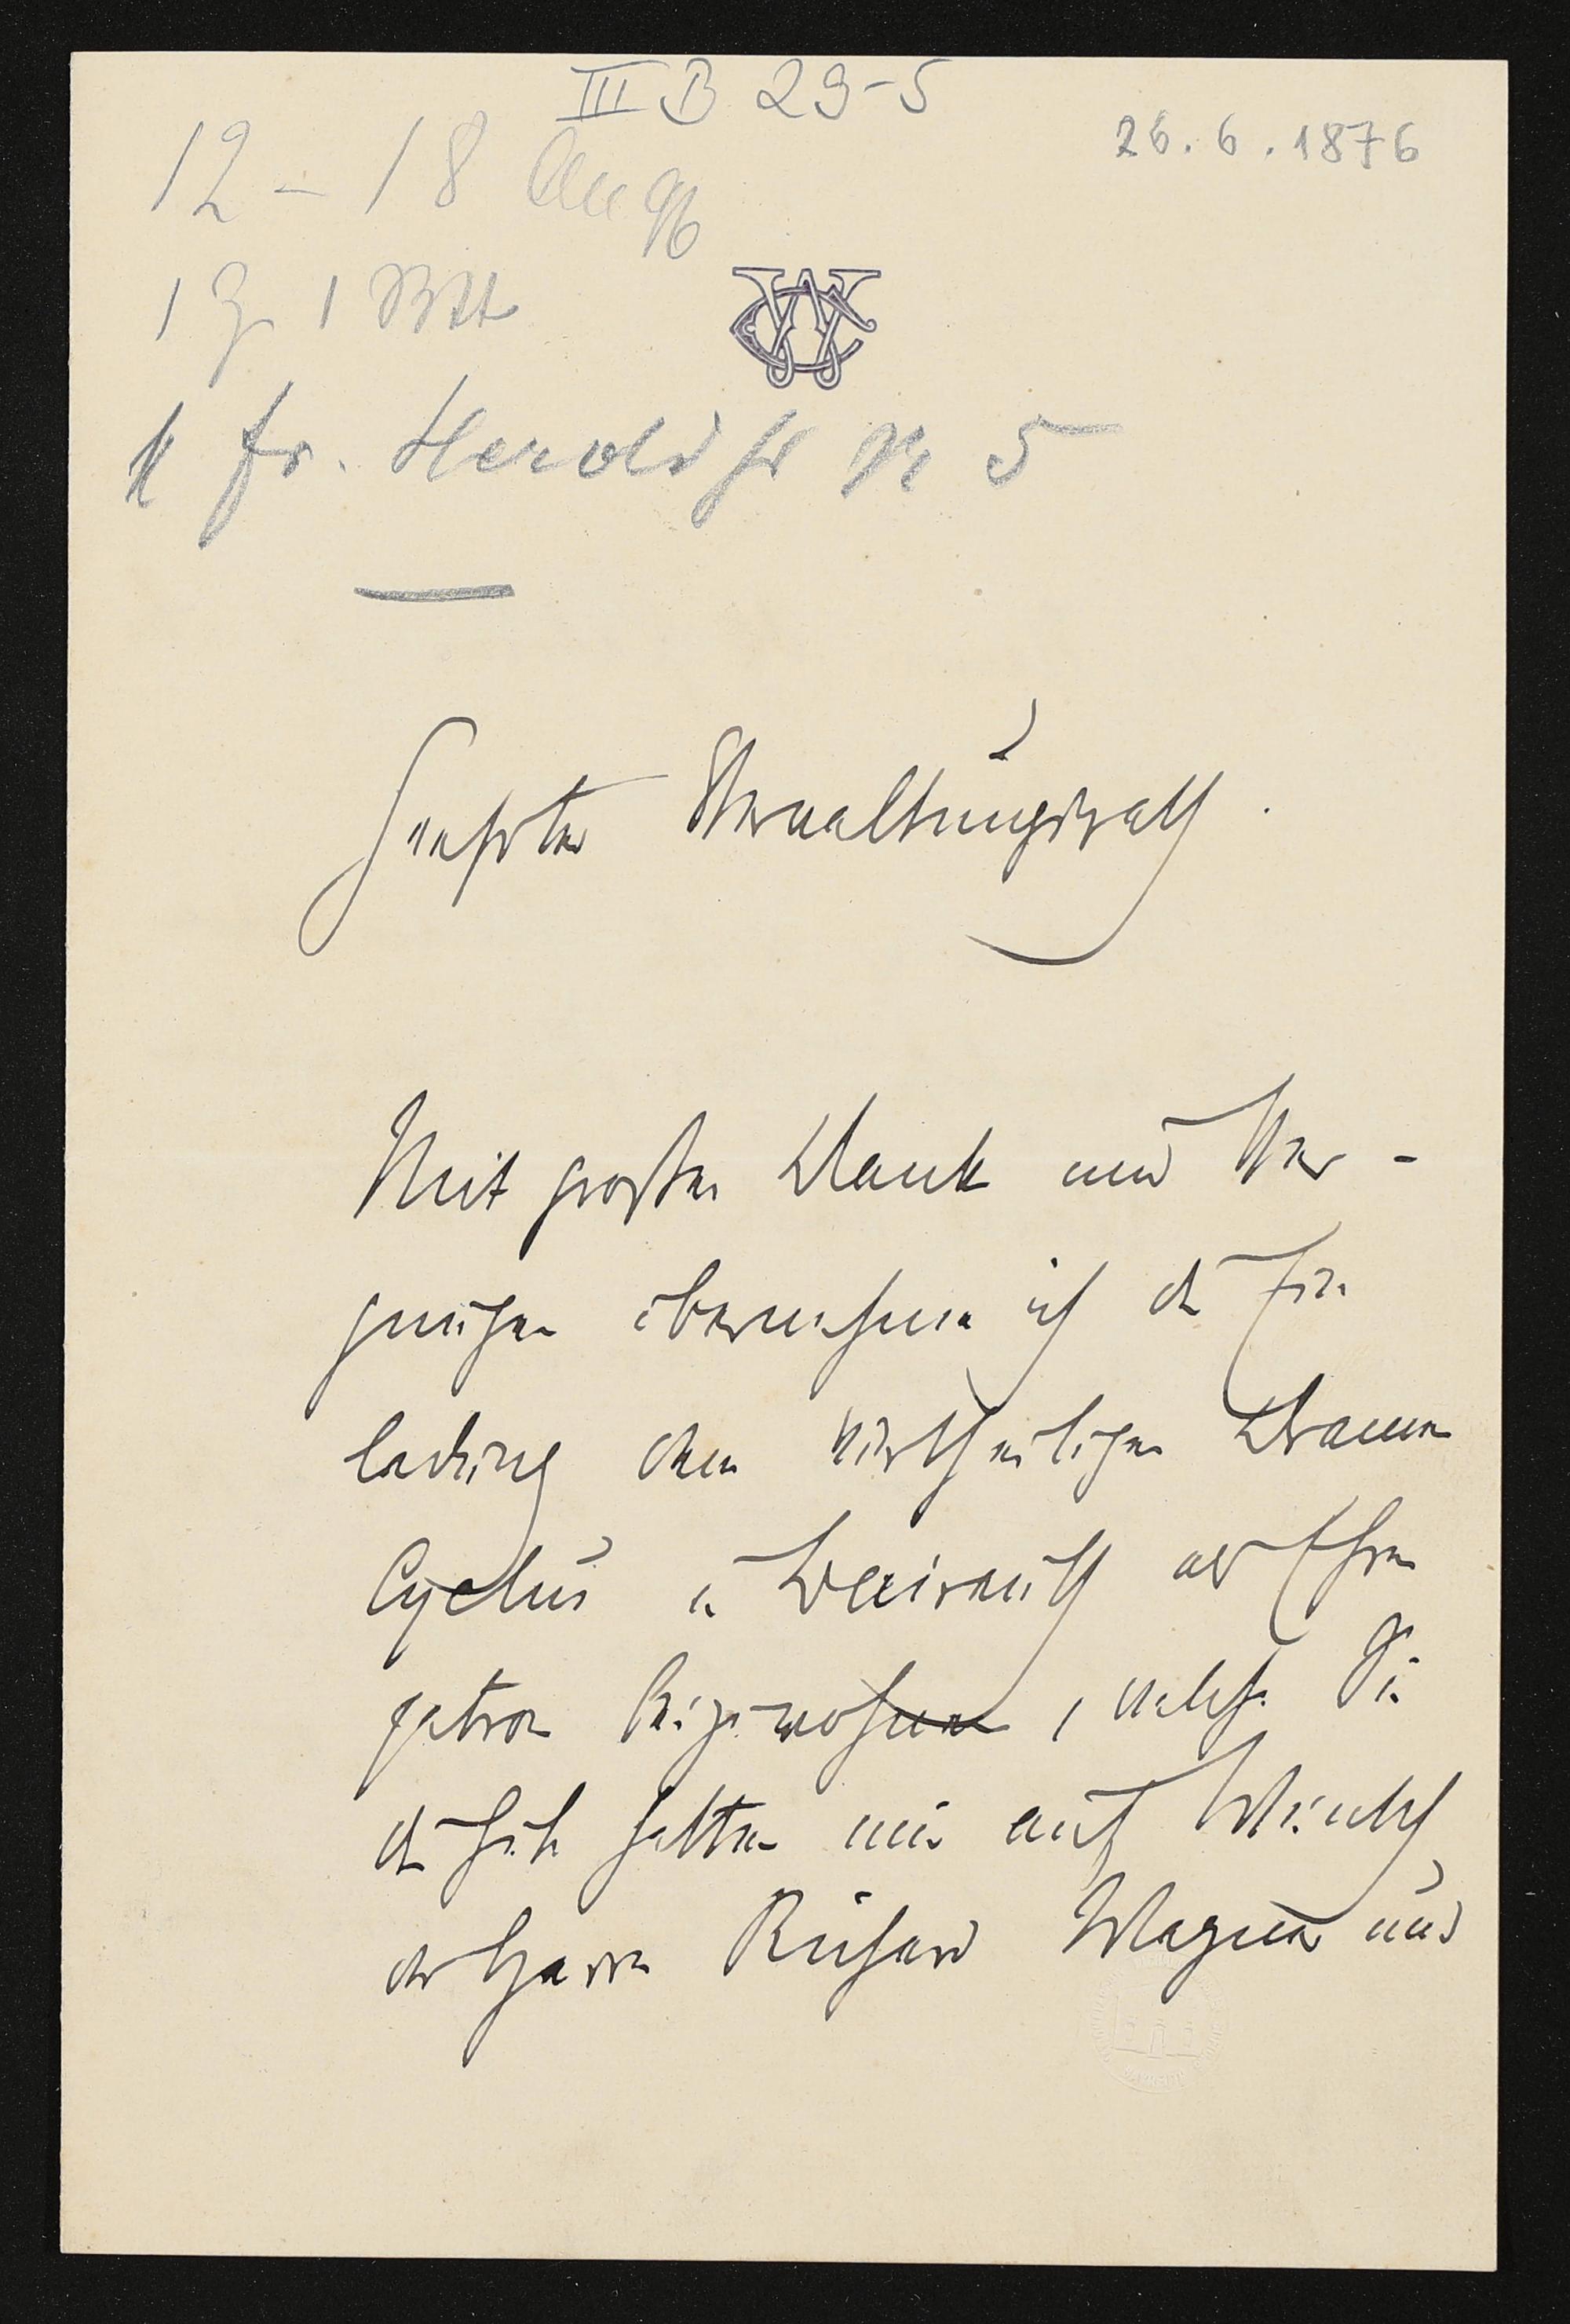 III B 29-5
26.6.1876
12 - 18 Aug
1 Z 1 Btt
fr. Herold Nr 5
Geehrter Verwaltungsrath.
Mit großen Dank und Ver-
gnügen übernehme ich die Ein
ladung dem viertheiligen Dramen
Cyclus in Baireuth als Ehren
patron beizuwohnen, welche Sie
die Güte hatten mir auf Wunsch
des Herrn Richard Wagner und